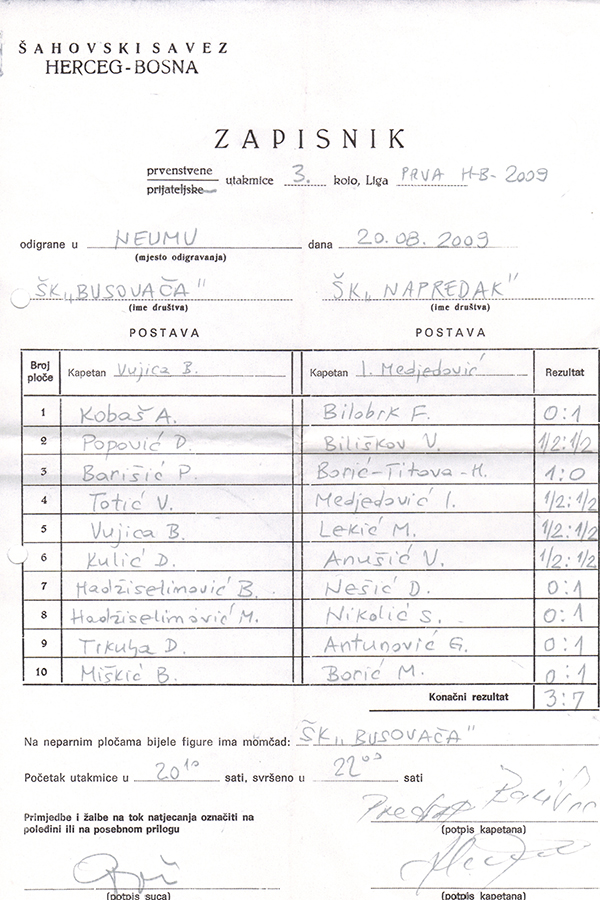 ŠAHOVSKI SAVEZ
HERCEG-BOSNA
ZAPISNIK
prvenstvene
prijateljske
utakmice 3. kolo, Liga PRVA H-B- 2009
odigrane u NEUMU dana 20.08.2009
(mjesto odigravanja)
ŠK „BUSOVAČA" ŠK „NAPREDAK"
(ime društva) (ime društva)
POSTAVA POSTAVA
Broj ploče Kapetan Vujica B. Kapetan I. Medjedović Rezultat
1 Kobaš A. Bilobrk F. 0:1
2 Popović D. Biliškov V. 1/2:1/2
3 Barišić P. Borić-Titova-M. 1:0
4 Totić V. Medjedović I. 1/2:1/2
5 Vujica B. Lekić M. 1/2:1/2
6 Kulić D. Anušić V. 1/2:1/2
7 Hadžiselimović B. Nešić D. 0:1
8 Hadžiselimović M. Nikolić S. 0:1
9 Trkulja D. Antunović G. 0:1
10 Miškić B. Borić M. 0:1
Konačni rezultat 3:7
Na neparnim pločama bijele figure ima momčad: ŠK „BUSOVAČA"
Početak utakmice u 20¹⁰ sati, svršeno u 22⁰⁰ sati
Primjedbe i žalbe na tok natjecanja označiti na
poleđini ili na posebnom prilogu
(potpis kapetana)
(potpis suca) (potpis kapetana)